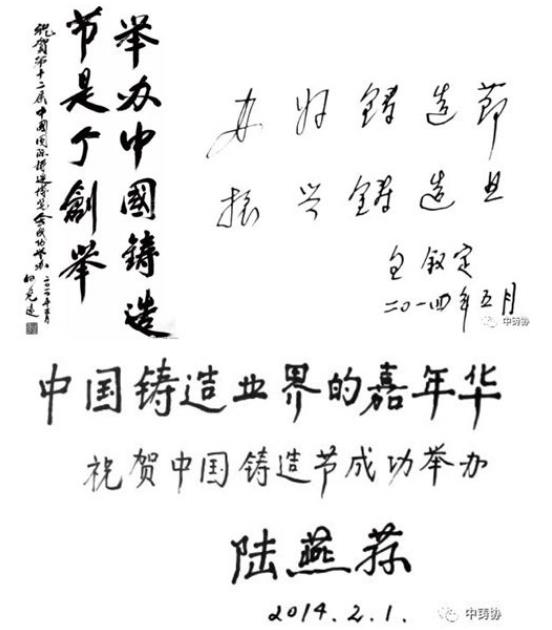 举办中國铸造
节是个創举
祝賀第十二届中國国际铸造博览会成功举办
何光远
办好铸造節
振兴铸造业
包叙定
二〇一四年五月
中铸协
中国铸造业界的嘉年华
祝贺中国铸造节成功举办
陆燕荪
2014.2.1.
中铸协